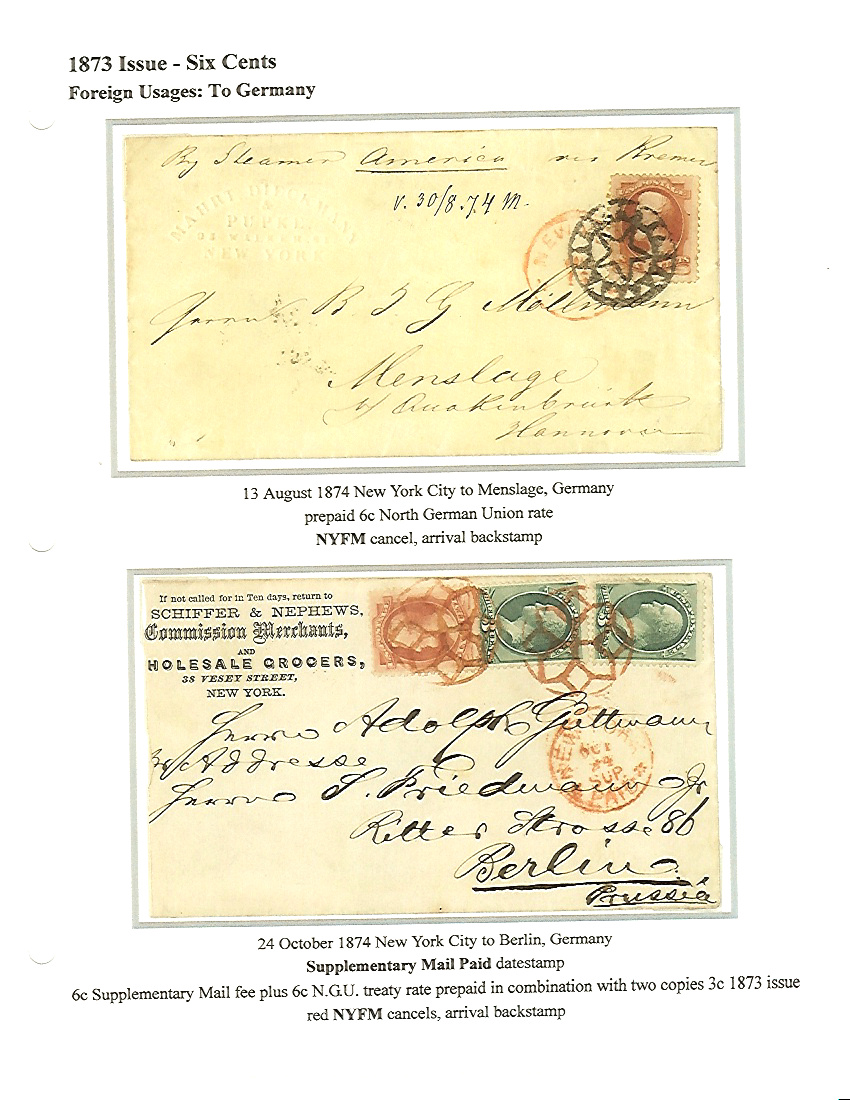 1873 Issue - Six Cents
Foreign Usages: To Germany
By Steamer America via Bremen
v. 30/8. 74 M.
MAHRT DIECKMANN
&
NEW YORK
NEW
Herrn B. J. G. Möllmann
Menslage
b/ Quakenbrück
Hannover
13 August 1874 New York City to Menslage, Germany
prepaid 6c North German Union rate
NYFM cancel, arrival backstamp
If not called for in Ten days, return to
SCHIFFER & NEPHEWS,
Commission Merchants,
AND
HOLESALE GROCERS,
38 VESEY STREET,
NEW YORK.
Herrn Adolph Guttmann
Addresse
Herrn S. Friedmann Jr
Ritter Strasse 86
Berlin
Prussia
NEW YORK
OCT
24
SUP.
PAID
24 October 1874 New York City to Berlin, Germany
Supplementary Mail Paid datestamp
6c Supplementary Mail fee plus 6c N.G.U. treaty rate prepaid in combination with two copies 3c 1873 issue
red NYFM cancels, arrival backstamp